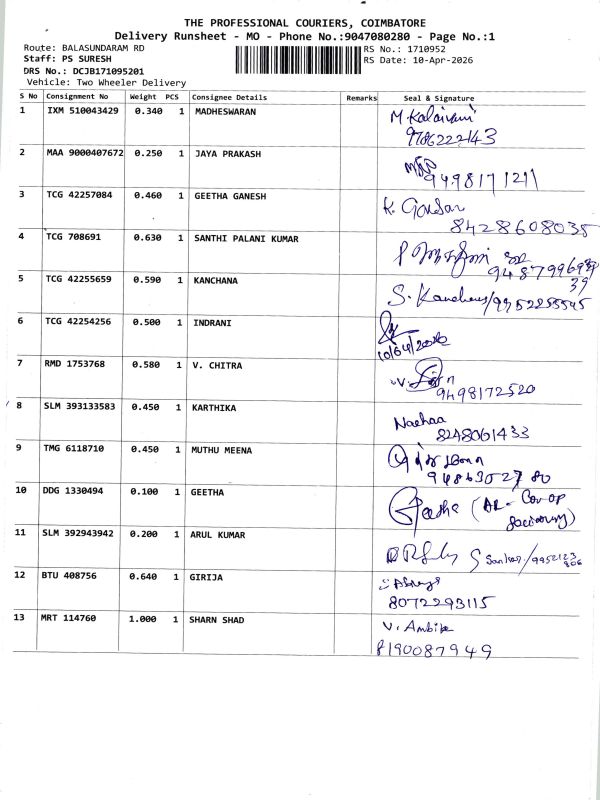 THE PROFESSIONAL COURIERS, COIMBATORE
Delivery Runsheet - MO - Phone No.:9047080280 - Page No.:1
Route: BALASUNDARAM RD RS No.: 1710952
Staff: PS SURESH RS Date: 10-Apr-2026
DRS No.: DCJB171095201
Vehicle: Two Wheeler Delivery
S No Consignment No Weight PCS Consignee Details Remarks Seal & Signature
1 IXM 510043429 0.340 1 MADHESWARAN M Kalaivani
9786222143
2 MAA 9000407672 0.250 1 JAYA PRAKASH
9498171211
3 TCG 42257084 0.460 1 GEETHA GANESH K.
8428608035
4 TCG 708691 0.630 1 SANTHI PALANI KUMAR
5 TCG 42255659 0.590 1 KANCHANA S. Kanchana/9952255545
6 TCG 42254256 0.500 1 INDRANI
10/04/2026
7 RMD 1753768 0.580 1 V. CHITRA
9498172520
8 SLM 393133583 0.450 1 KARTHIKA
8248061433
9 TMG 6118710 0.450 1 MUTHU MEENA
9486302780
10 DDG 1330494 0.100 1 GEETHA Geetha (AR- Co-op
Society)
11 SLM 392943942 0.200 1 ARUL KUMAR S Sankar/9952123
806
12 BTU 408756 0.640 1 GIRIJA
8072293115
13 MRT 114760 1.000 1 SHARN SHAD V. Ambika
8190087949